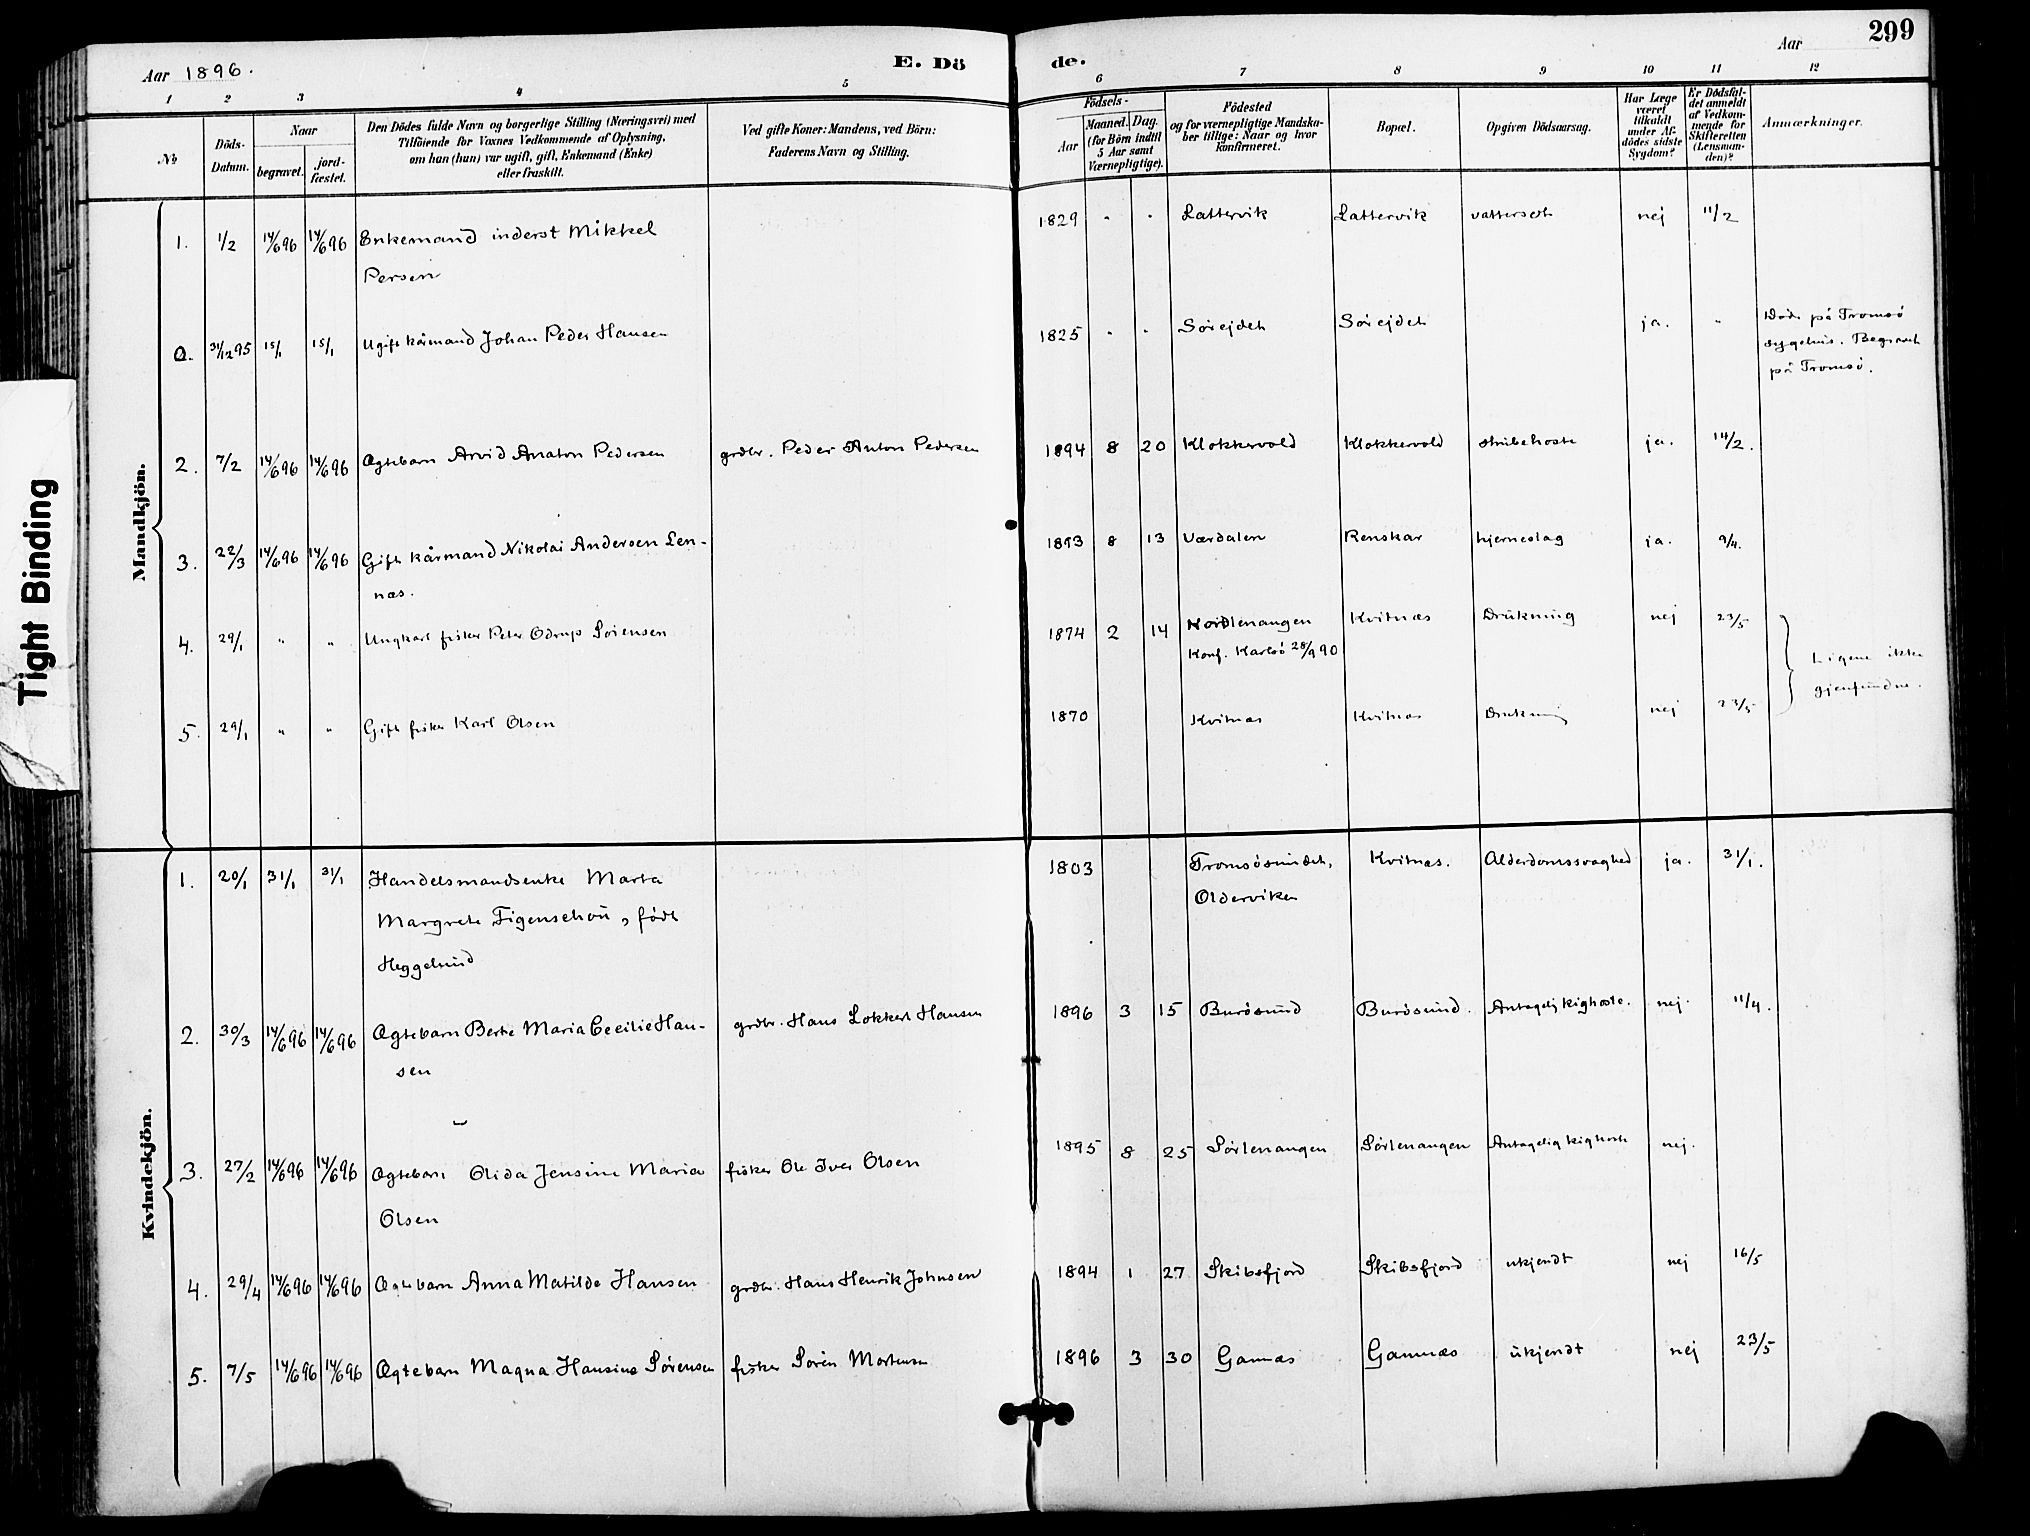 299
Aar 1896.
E. Dö
de.
Aar
1 2 3 4 5 6 7 8 9 10 11 12
No
Döds-Datum.
Naar
begravet.
jord-fæstet.
Den Dödes fulde Navn og borgerlige Stilling (Næringsvei) med
Tilföiende for Voxnes Vedkommende af Oplysning,
om han (hun) var ugift, gift, Enkemand (Enke)
eller fraskilt.
Ved gifte Koner: Mandens, ved Börn:
Faderens Navn og Stilling.
Födsels-
Aar
Maaned. Dag.
(for Börn indtil
5 Aar samt
Værnepligtige).
Födested
og for værnepligtige Mandska-
ber tillige: Naar og hvor
konfirmeret.
Bopæl.
Opgiven Dödsaarsag.
Har Læge
været
tilkaldt
under Af-
dödes sidste
Sygdom?
Er Dödsfal-
det anmeldt
af Vedkom-
mende for
Skifteretten
(Lensman-
den)?
Anmærkninger.
Tight Binding
Mandkjön.
1. 1/2 14/6 96 14/6 96 Enkemand inderst Mikkel 1829 " " Lattervik Lattervik vattersot nej 11/2
Persen
0. 31/12 95 15/1 15/1 Ugift kårmand Johan Peder Hansen 1825 " " Sörejdet Sörejdet ja. " Död på Tromsö
sygehus. Begravet
på Tromsö.
2. 7/2 14/6 96 14/6 96 Ægtebarn Arvid Anaton Pedersen grdbr. Peder Anton Pedersen 1894 8 20 Klokkervold Klokkervold strubehoste ja. 14/2.
3. 22/3 14/6 96 14/6 96 Gift kårmand Nikolai Andersen Len- 1893 8 13 Værdalen Renskar hjerneslag ja. 9/4.
næs.
4. 29/1 " " Ungkarl fisker Peter Odrup Sörensen 1874 2 14 Nordlenangen Kvitnæs Drukning nej 23/5
Konf. Karlsö 28/9 90
Ligene ikke
gjenfundne.
5. 29/1 " " Gift fisker Karl Olsen 1870 Kvitnæs Kvitnæs Drukning nej 23/5
Kvindekjön.
1. 20/1 31/1 31/1 Handelsmandsenke Marta 1803 Tromsösundet, Kvitnæs. Alderdomssvaghed ja. 31/1.
Margrete Figenschou, född Olderviken
Heggelund
2. 30/3 14/6 96 14/6 96 Ægtebarn Berte Maria Cecilie Han- grdbr. Hans Lokkert Hansen 1896 3 15 Burösund Burösund. Antagelig kighoste. nej. 11/4.
sen
3. 27/2 14/6 96 14/6 96 Ægtebarn Olida Jensine Maria fisker Ole Iver Olsen 1895 8 25 Sörlenangen Sörlenangen Antagelig kighoste nej.
Olsen
4. 29/4 14/6 96 14/6 96 Ægtebarn Anna Matilde Hansen grdbr. Hans Henrik Johnsen 1894 1 27 Skibsfjord Skibsfjord ukjendt nej 16/5
5. 7/5 14/6 96 14/6 96 Ægtebarn Magna Hansine Sörensen fisker Sören Mortensen 1896 3 30 Gamnæs Gamnæs ukjendt nej 23/5